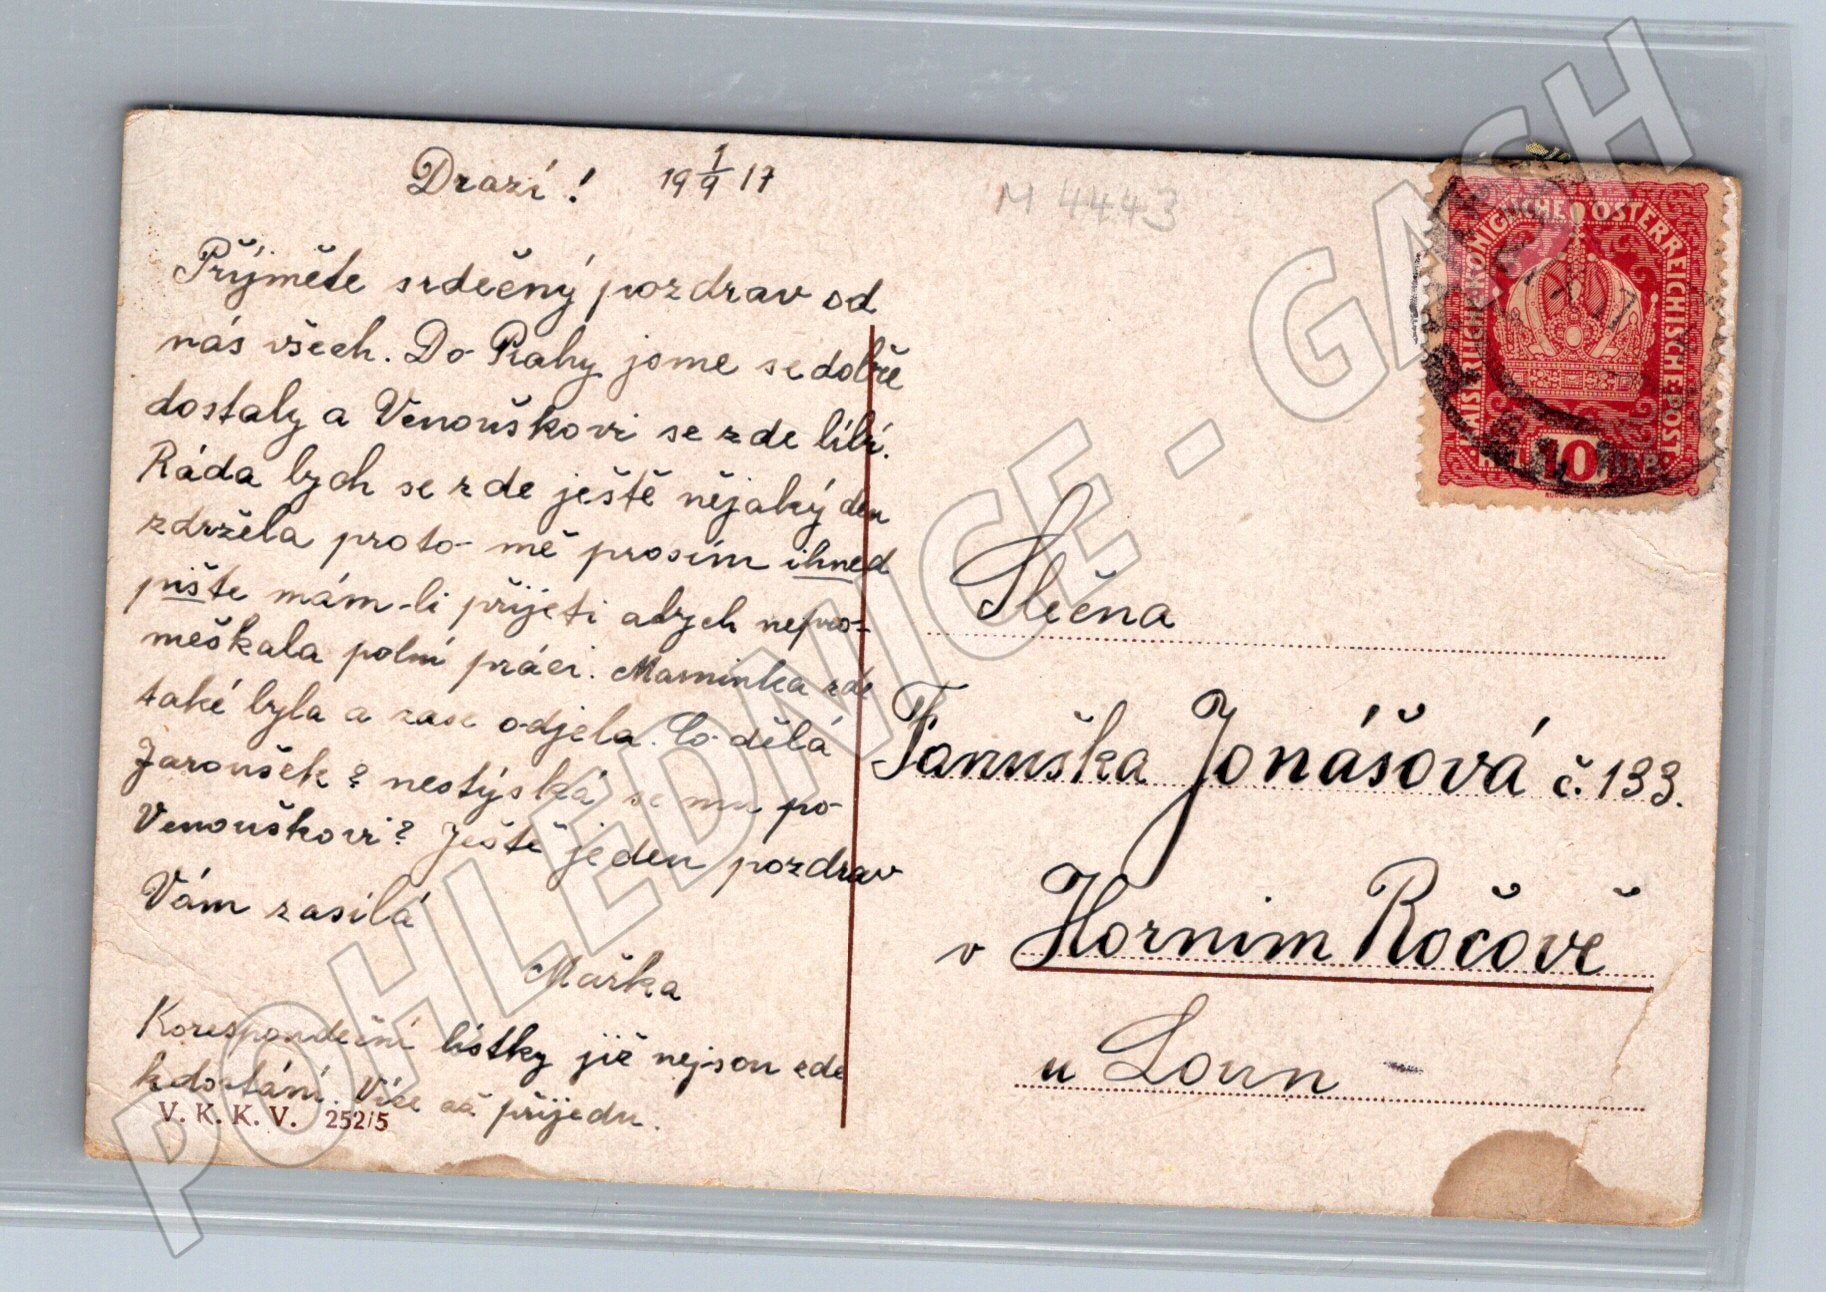 Drazí! 19 1/9 17
M 4443
Příjměte srdečný pozdrav od
nás všech. Do Prahy jsme se dobře
dostaly a Venouškovi se zde líbí.
Ráda bych se zde ještě nějaký den
zdržela proto mě prosím ihned
pište mám-li přijeti abych nepro-
meškala polní práci. Maminka zde
také byla a zase odjela. Co dělá
Jaroušek? nestýská se mu po
Venouškovi? Ještě jeden pozdrav
Vám zasílá
Mařka
Korespondeční lístky již nejsou zde
k dostání. Více až přijedu.
V. K. K. V. 252/5
KAISERLICHE KÖNIGLICHE ÖSTERREICHISCHE POST
10
Slečna
Fanuška Jonášová č. 133.
v Hornim Ročově
u Loun
POHLEDNICE - GASH